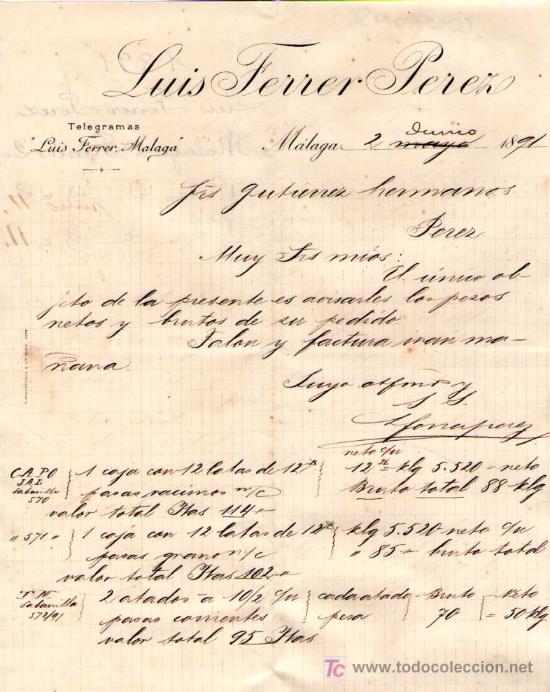 Luis Ferrer Perez
Telegramas
"Luis Ferrer, Malaga"
Málaga, 2 mayo Junio 1891
Srs Gutierrez hermanos
Perez
Muy Srs mios:
El único ob-
jeto de la presente es avisarles los pesos
netos y brutos de su pedido
Talon y factura iran ma-
ñana.
Suyo afmo y
S. S.
neto c/u
1 caja con 12 latas de 12 12 klg 5.520 = neto
570 pasas racimos m/c Bruto total 88 klg
valor total Ptas 114
" 571 " 1 caja con 12 latas de 12 klg 5.520 neto c/u
pasas grano m/c " 85 " bruto total
valor total Ptas 102
2 atados a 10/2 c/u cada atado Bruto Neto
572/91 pasas corrientes pesa 70 = 50 klg
valor total 95 Ptas
TC www.todocoleccion.net